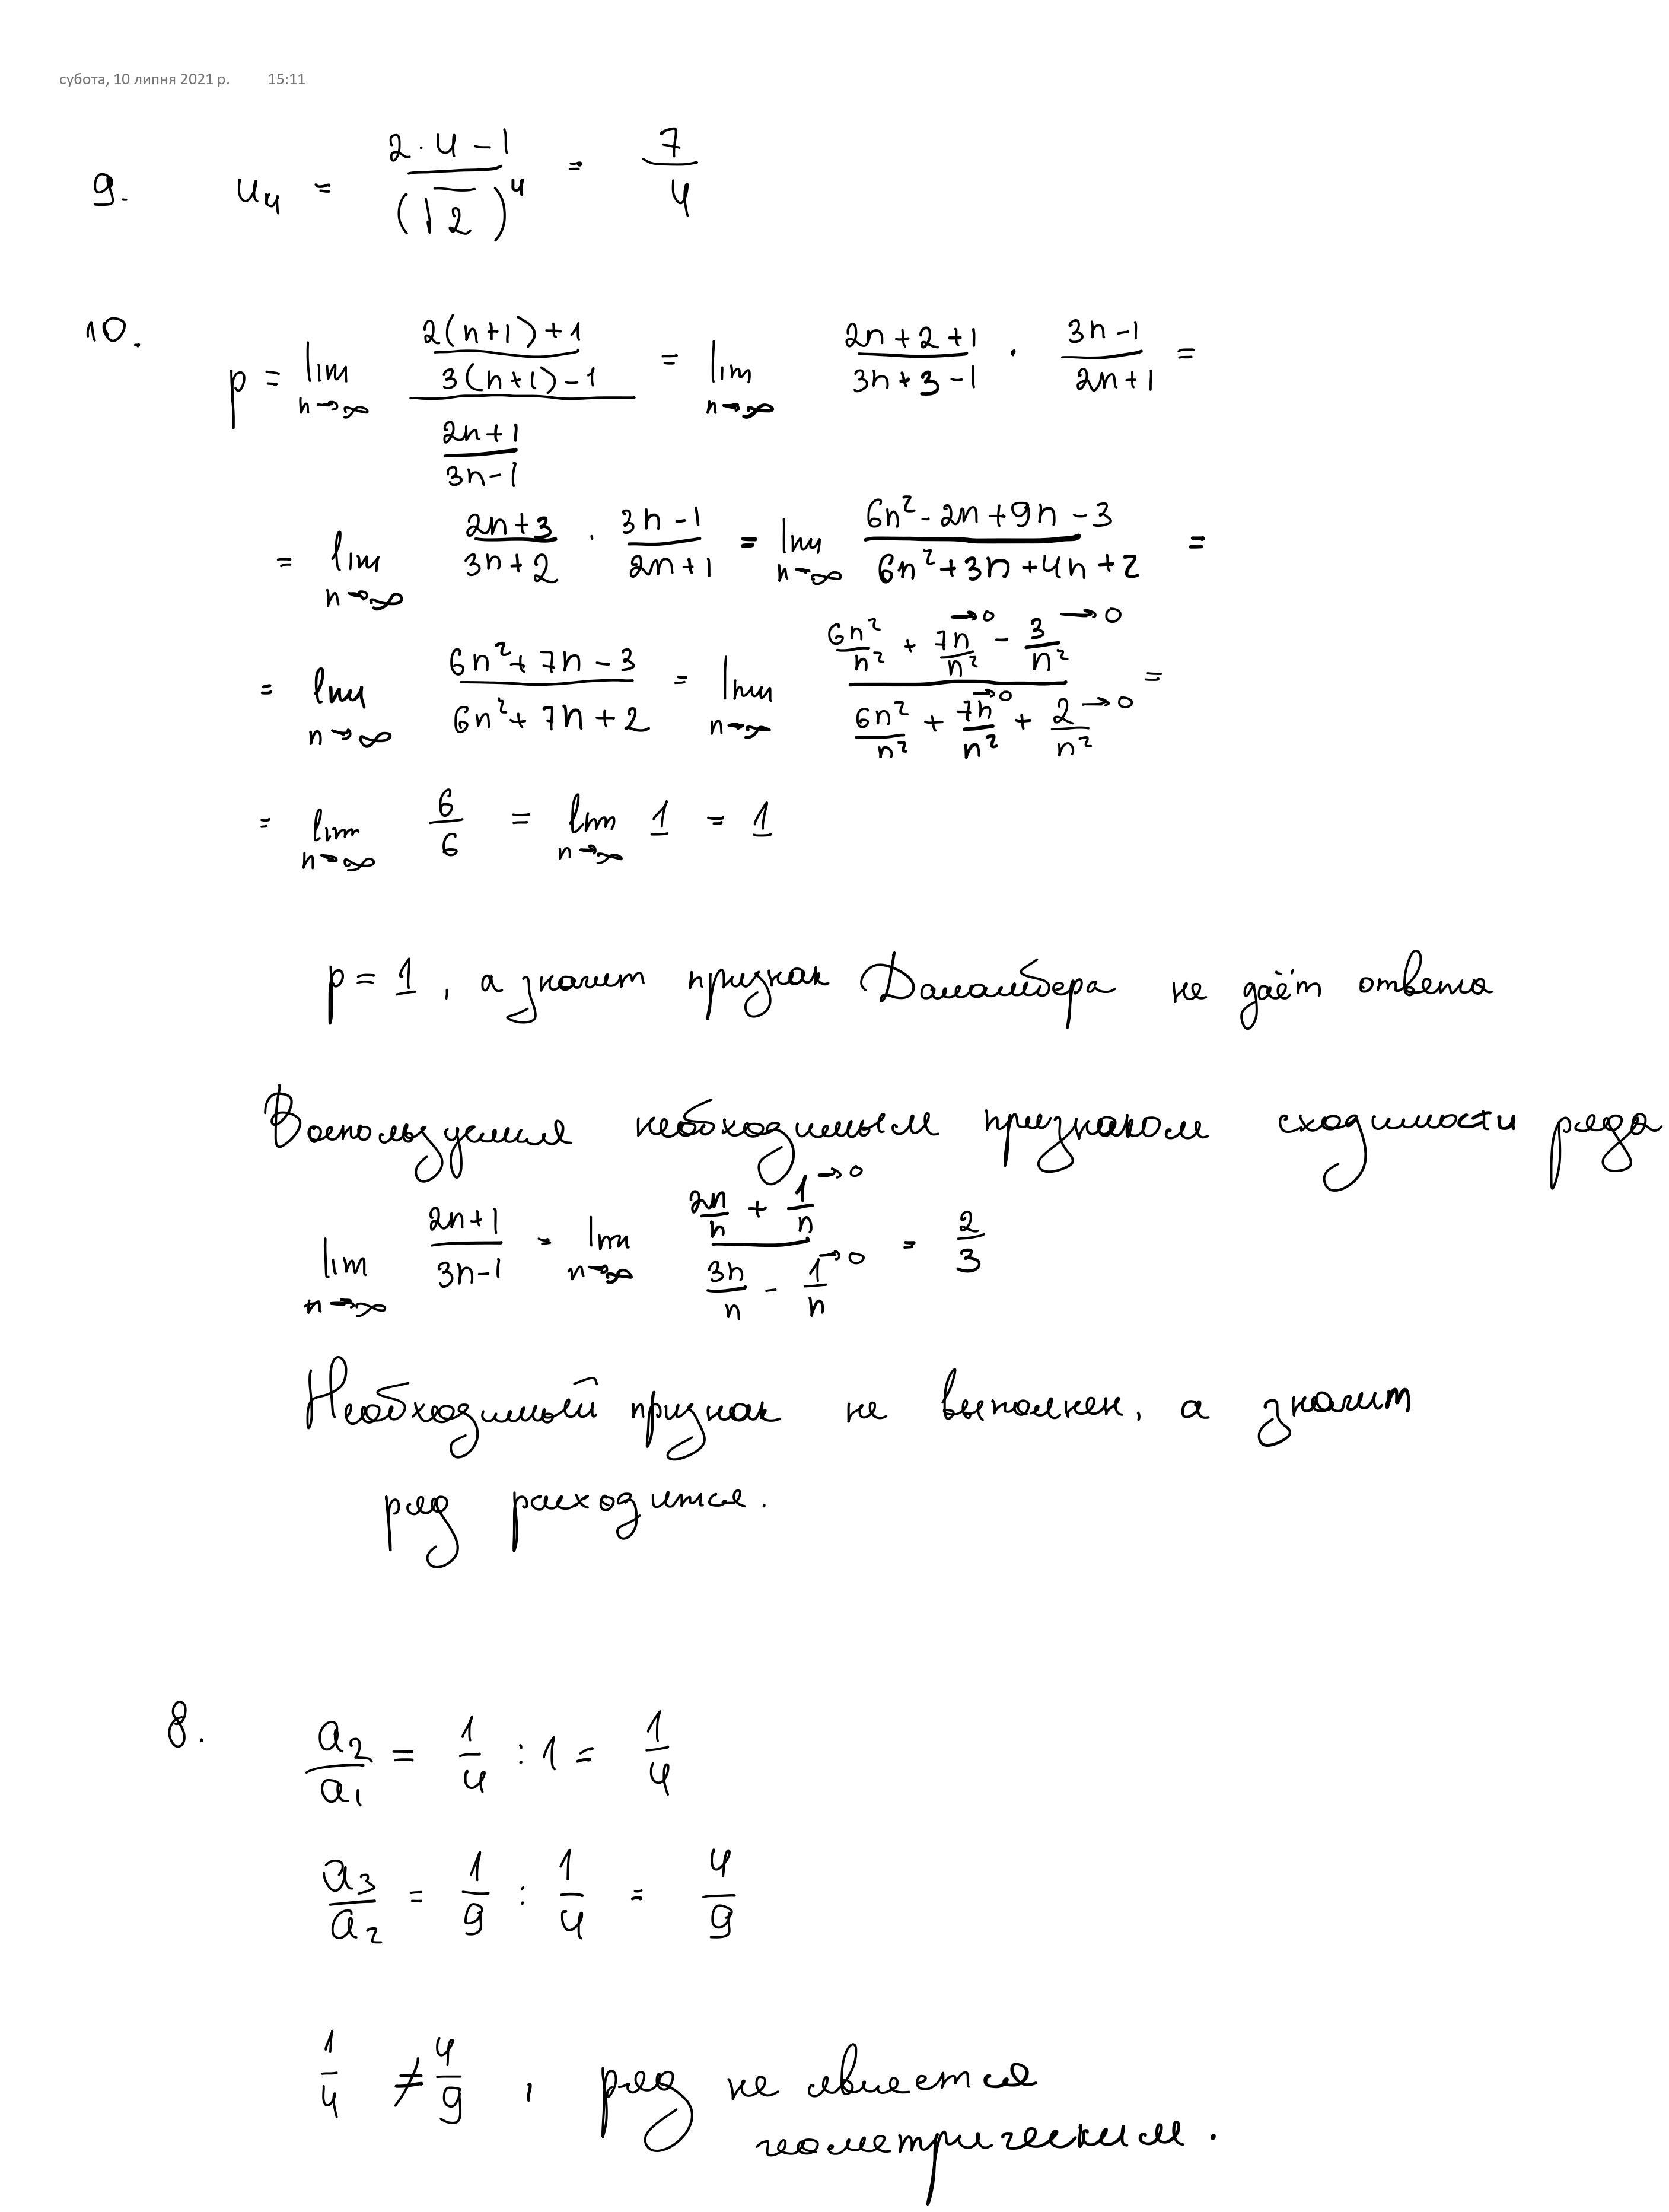 субота, 10 липня 2021 р. 15:11
9. u₄ = (2·4 − 1)/(√2)⁴ = 7/4
10. p = lim n→∞ ((2(n+1)+1)/(3(n+1)−1))/((2n+1)/(3n−1)) = lim n→∞ (2n+2+1)/(3n+3−1) · (3n−1)/(2n+1) =
= lim n→∞ (2n+3)/(3n+2) · (3n−1)/(2n+1) = lim n→∞ (6n²−2n+9n−3)/(6n²+3n+4n+2) =
= lim n→∞ (6n²+7n−3)/(6n²+7n+2) = lim n→∞ (6n²/n² + 7n/n² →0 − 3/n² →0)/(6n²/n² + 7n/n² →0 + 2/n² →0) =
= lim n→∞ 6/6 = lim n→∞ 1 = 1
p = 1, а значит признак Даламбера не даёт ответа
Воспользуемся необходимым признаком сходимости ряда
lim n→∞ (2n+1)/(3n−1) = lim n→∞ (2n/n + 1/n →0)/(3n/n − 1/n →0) = 2/3
Необходимый признак не выполнен, а значит
ряд расходится.
8. a₂/a₁ = 1/4 : 1 = 1/4
a₃/a₂ = 1/9 : 1/4 = 4/9
1/4 ≠ 4/9, ряд не является
геометрическим.